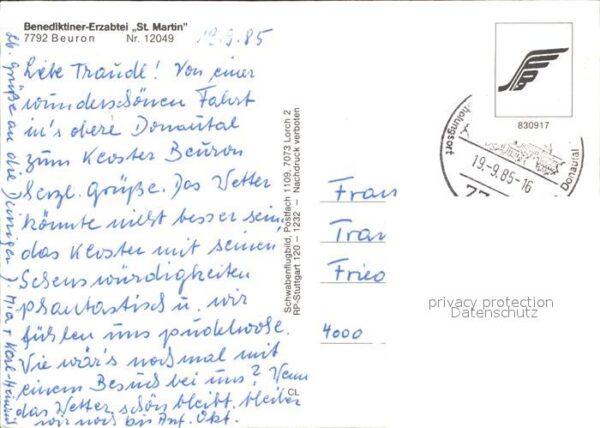 Benediktiner-Erzabtei „St. Martin"
7792 Beuron Nr. 12049
19.9.85
Liebe Traudl! Von einer
wunderschönen Fahrt
in's obere Donautal
zum Kloster Beuron
herzl. Grüße. Das Wetter
könnte nicht besser sein,
das Kloster mit seinen
Sehenswürdigkeiten
phantastisch u. wir
fühlen uns pudelwohl.
Wie wär's nochmal mit
einem Besuch bei uns? Wenn
das Wetter schön bleibt, bleiben
wir noch bis Anf. Okt.
Lb. Grüße an die Deinigen
Mia + Karl-Heinrich
Schwabenflugbild, Postfach 1109, 7073 Lorch 2
RP-Stuttgart 120 – 1232 – Nachdruck verboten
CL
830917
holungsort
Donautal
19.-9.85-16
77
Frau
Trau
Fried
4000
privacy protection
Datenschutz